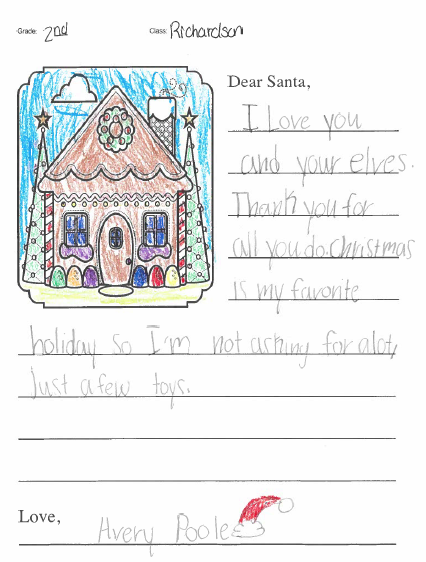 Grade: 2nd Class: Richardson
Dear Santa,
I Love you
and your elves.
Thank you for
all you do. Christmas
is my favorite
holiday so I'm not asking for alot,
Just a few toys.
Love,
Avery Poole